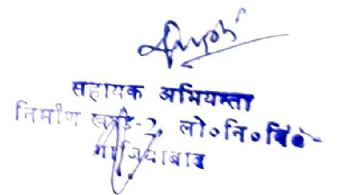 सहायक अभियन्ता
निर्माण खण्ड-2, लो०नि०वि०
गाजियाबाद